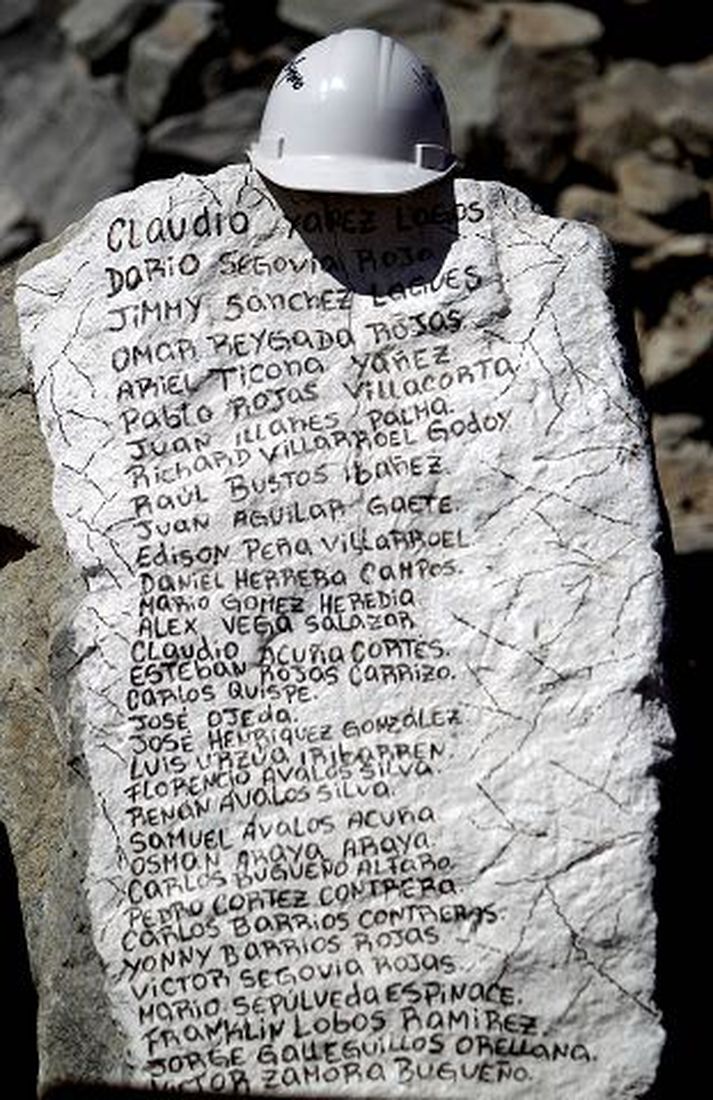 Claudio Yañez Lagos
DARIO SEGOVIA ROJO
JiMMY SánCHEZ LAGUES
OMAR REYGADA ROJAS
ARIEL Ticona YAÑEZ
Pablo ROJAS VillACORTA
JUAN ILLANES PALMA.
RICHARD VILLARROEL GODOY
RAÚL BUSTOS IBAÑEZ.
JUAN AGUILAR GAETE.
Edison PEÑA VILLARROEL
DANIEL HERRERA CAMPOS.
MARIO GOMEZ HEREDIA
ALEX VEGA SALAZAR
Claudio ACUÑA CORTÉS.
ESTEBAN ROJAS CARRIZO.
CARLOS QUISPE.
JOSÉ OJEda.
JOSÉ HENRIQUEZ GONZÁLEZ
LUIS URZÚA IRIBARREN
FLORENCIO AVALOS SILVA.
RENÁN ÁVALOS SILVA.
SAMUEL ÁVALOS ACUÑA
OSMAN ARAYA ARAYA
CARLOS BUGUEÑO ALFARO.
PEDRO CORTEZ CONTRERA.
CARLOS BARRIOS CONTRERAS.
YONNY BARRIOS ROJAS
VICTOR SEGOVIA ROJAS
MARIO SEPÚLVEDA ESPINACE.
FRANKLIN LOBOS RAMÍREZ.
JORGE GALLEGUILLOS ORELLANA.
VICTOR ZAMORA BUGUEÑO.